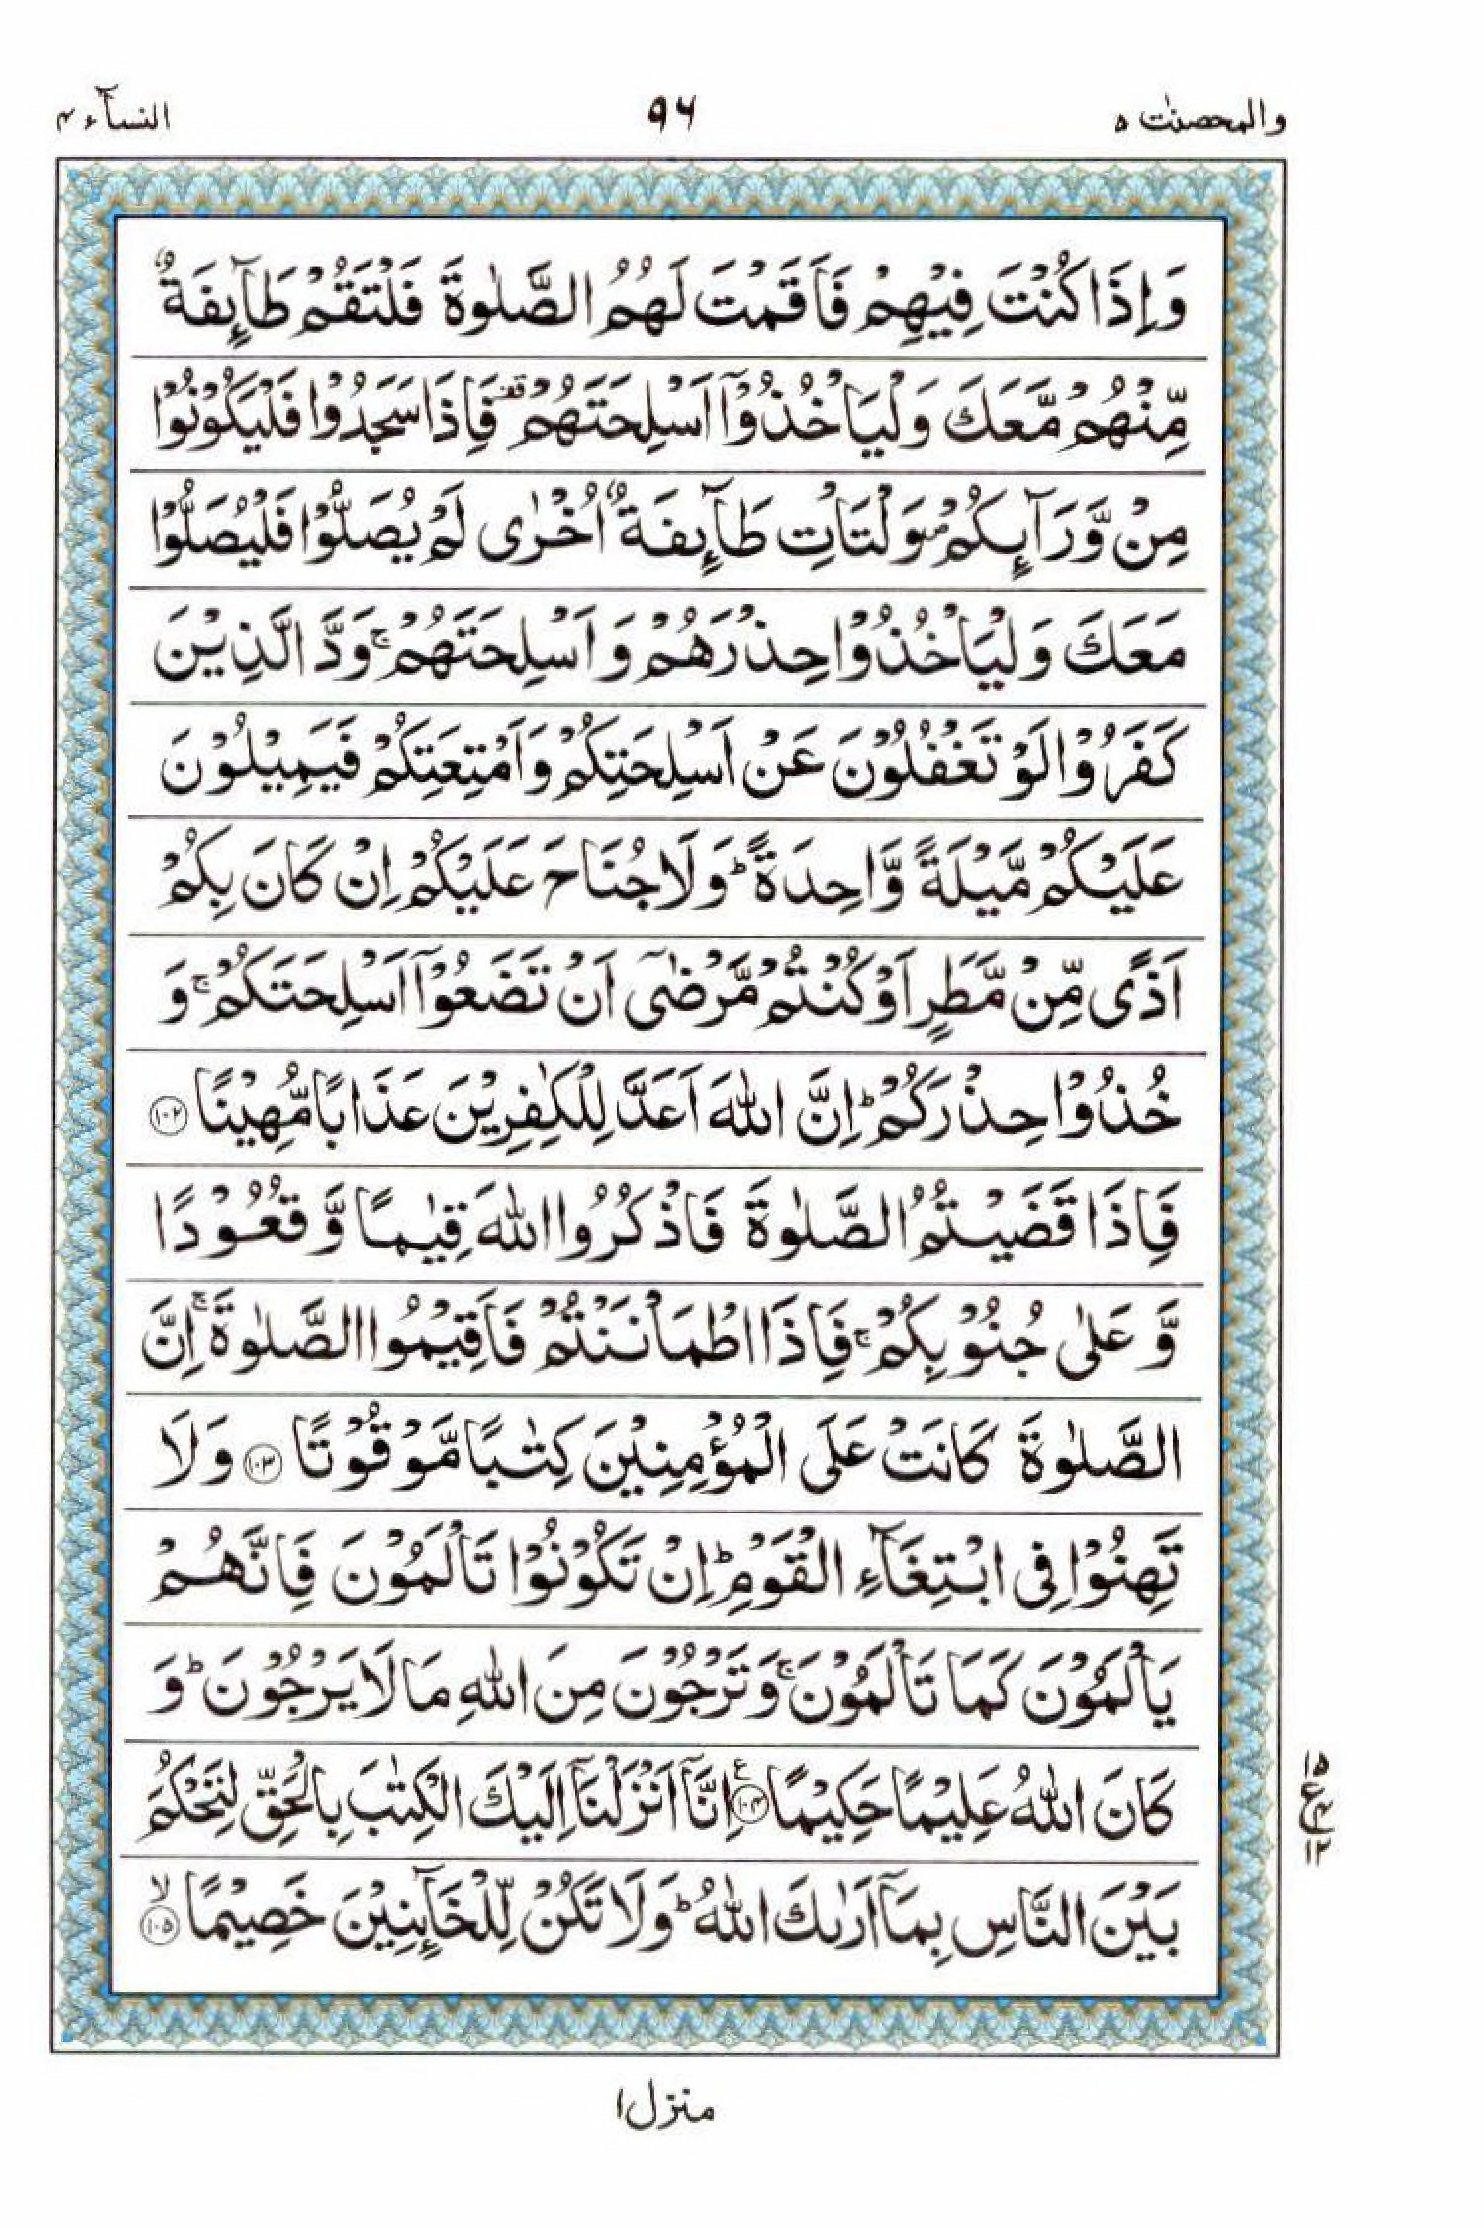 والمحصنٰت ۵
۹۶
النسآء ۴
وَاِذَا كُنْتَ فِيْهِمْ فَاَقَمْتَ لَهُمُ الصَّلٰوةَ فَلْتَقُمْ طَآئِفَةٌ
مِّنْهُمْ مَّعَكَ وَلْيَاْخُذُوْٓا اَسْلِحَتَهُمْ ۫ فَاِذَا سَجَدُوْا فَلْيَكُوْنُوْا
مِنْ وَّرَآئِكُمْ ۪ وَلْتَاْتِ طَآئِفَةٌ اُخْرٰى لَمْ يُصَلُّوْا فَلْيُصَلُّوْا
مَعَكَ وَلْيَاْخُذُوْا حِذْرَهُمْ وَاَسْلِحَتَهُمْ ۚ وَدَّ الَّذِيْنَ
كَفَرُوْا لَوْ تَغْفُلُوْنَ عَنْ اَسْلِحَتِكُمْ وَاَمْتِعَتِكُمْ فَيَمِيْلُوْنَ
عَلَيْكُمْ مَّيْلَةً وَّاحِدَةً ؕ وَلَا جُنَاحَ عَلَيْكُمْ اِنْ كَانَ بِكُمْ
اَذًى مِّنْ مَّطَرٍ اَوْ كُنْتُمْ مَّرْضٰٓى اَنْ تَضَعُوْٓا اَسْلِحَتَكُمْ ۚ وَ
خُذُوْا حِذْرَكُمْ ؕ اِنَّ اللّٰهَ اَعَدَّ لِلْكٰفِرِيْنَ عَذَابًا مُّهِيْنًا ﴿۱۰۲﴾
فَاِذَا قَضَيْتُمُ الصَّلٰوةَ فَاذْكُرُوا اللّٰهَ قِيٰمًا وَّقُعُوْدًا
وَّعَلٰى جُنُوْبِكُمْ ۚ فَاِذَا اطْمَاْنَنْتُمْ فَاَقِيْمُوا الصَّلٰوةَ ۚ اِنَّ
الصَّلٰوةَ كَانَتْ عَلَى الْمُؤْمِنِيْنَ كِتٰبًا مَّوْقُوْتًا ﴿۱۰۳﴾ وَلَا
تَهِنُوْا فِى ابْتِغَآءِ الْقَوْمِ ؕ اِنْ تَكُوْنُوْا تَاْلَمُوْنَ فَاِنَّهُمْ
يَاْلَمُوْنَ كَمَا تَاْلَمُوْنَ ۚ وَتَرْجُوْنَ مِنَ اللّٰهِ مَا لَا يَرْجُوْنَ ؕ وَ
كَانَ اللّٰهُ عَلِيْمًا حَكِيْمًا ﴿۱۰۴﴾ ع اِنَّآ اَنْزَلْنَآ اِلَيْكَ الْكِتٰبَ بِالْحَقِّ لِتَحْكُمَ
بَيْنَ النَّاسِ بِمَآ اَرٰىكَ اللّٰهُ ؕ وَلَا تَكُنْ لِّلْخَآئِنِيْنَ خَصِيْمًا ﴿۱۰۵﴾ ۙ
۱۵
ع ۴
۱۲
منزل ۱